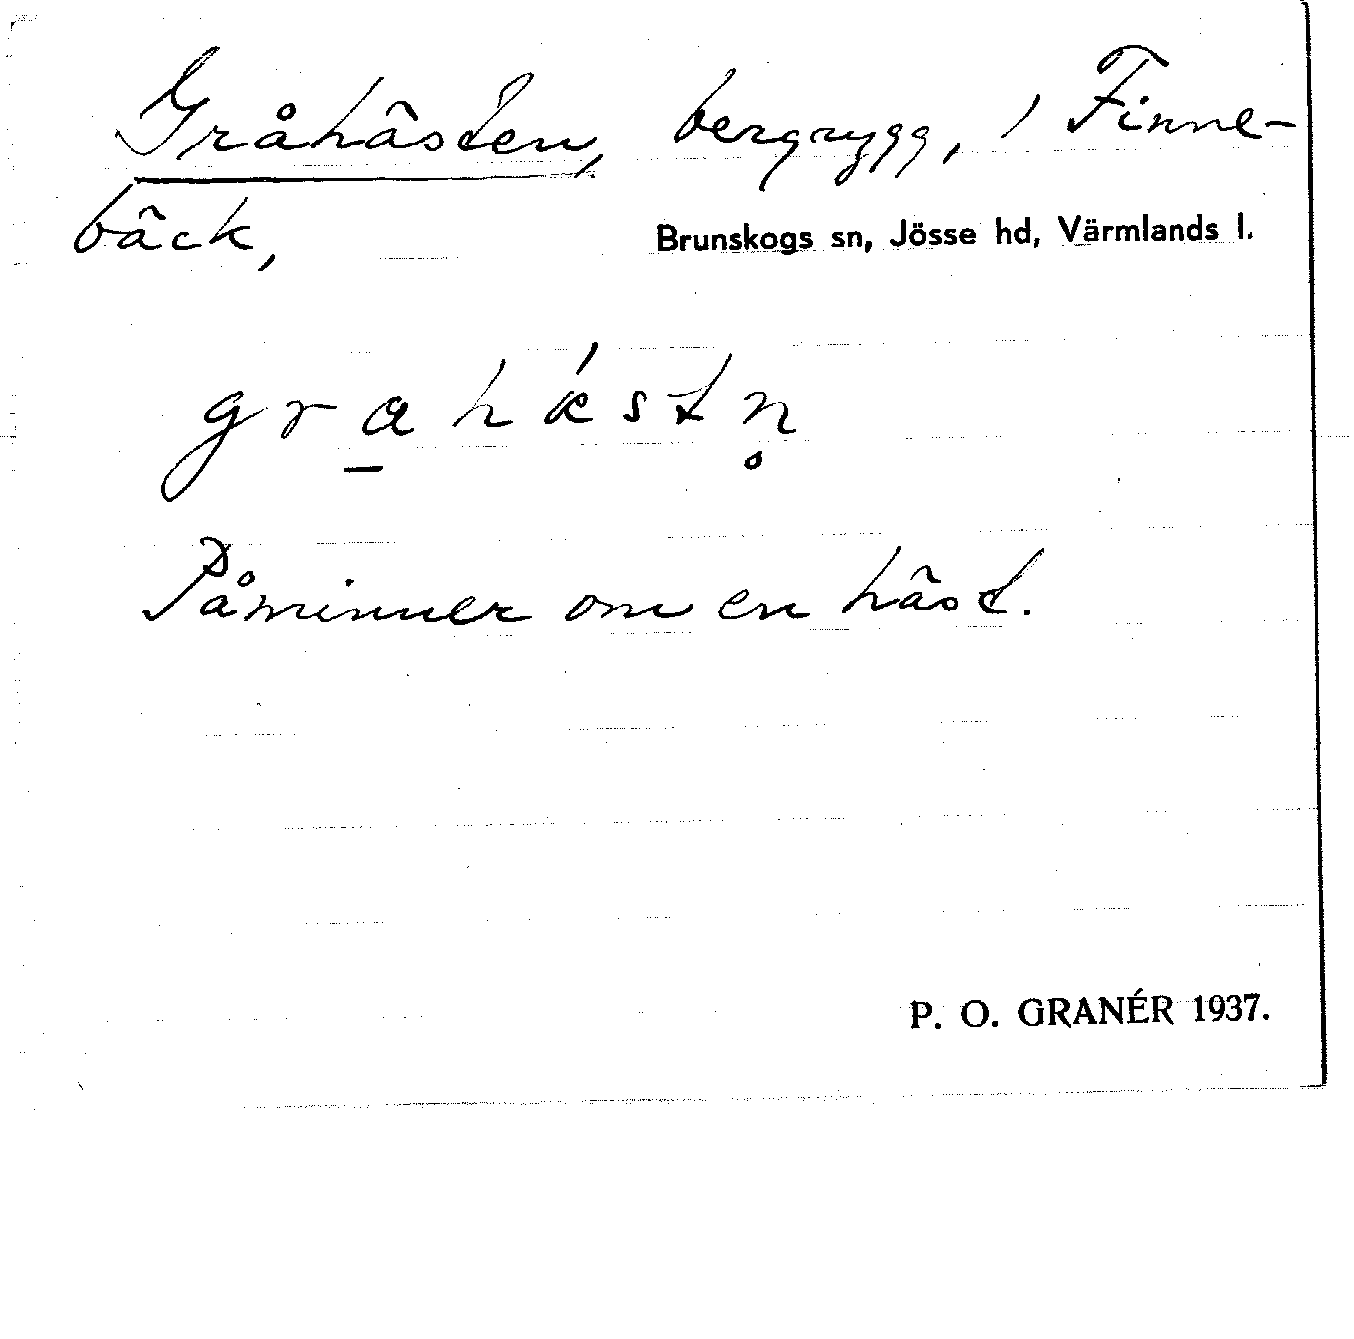 Gråhästen, bergrygg, / Finne-
bäck,
Brunskogs sn, Jösse hd, Värmlands l.
gra̲hǽstn̥
Påminner om en häst.
P. O. GRANÉR 1937.